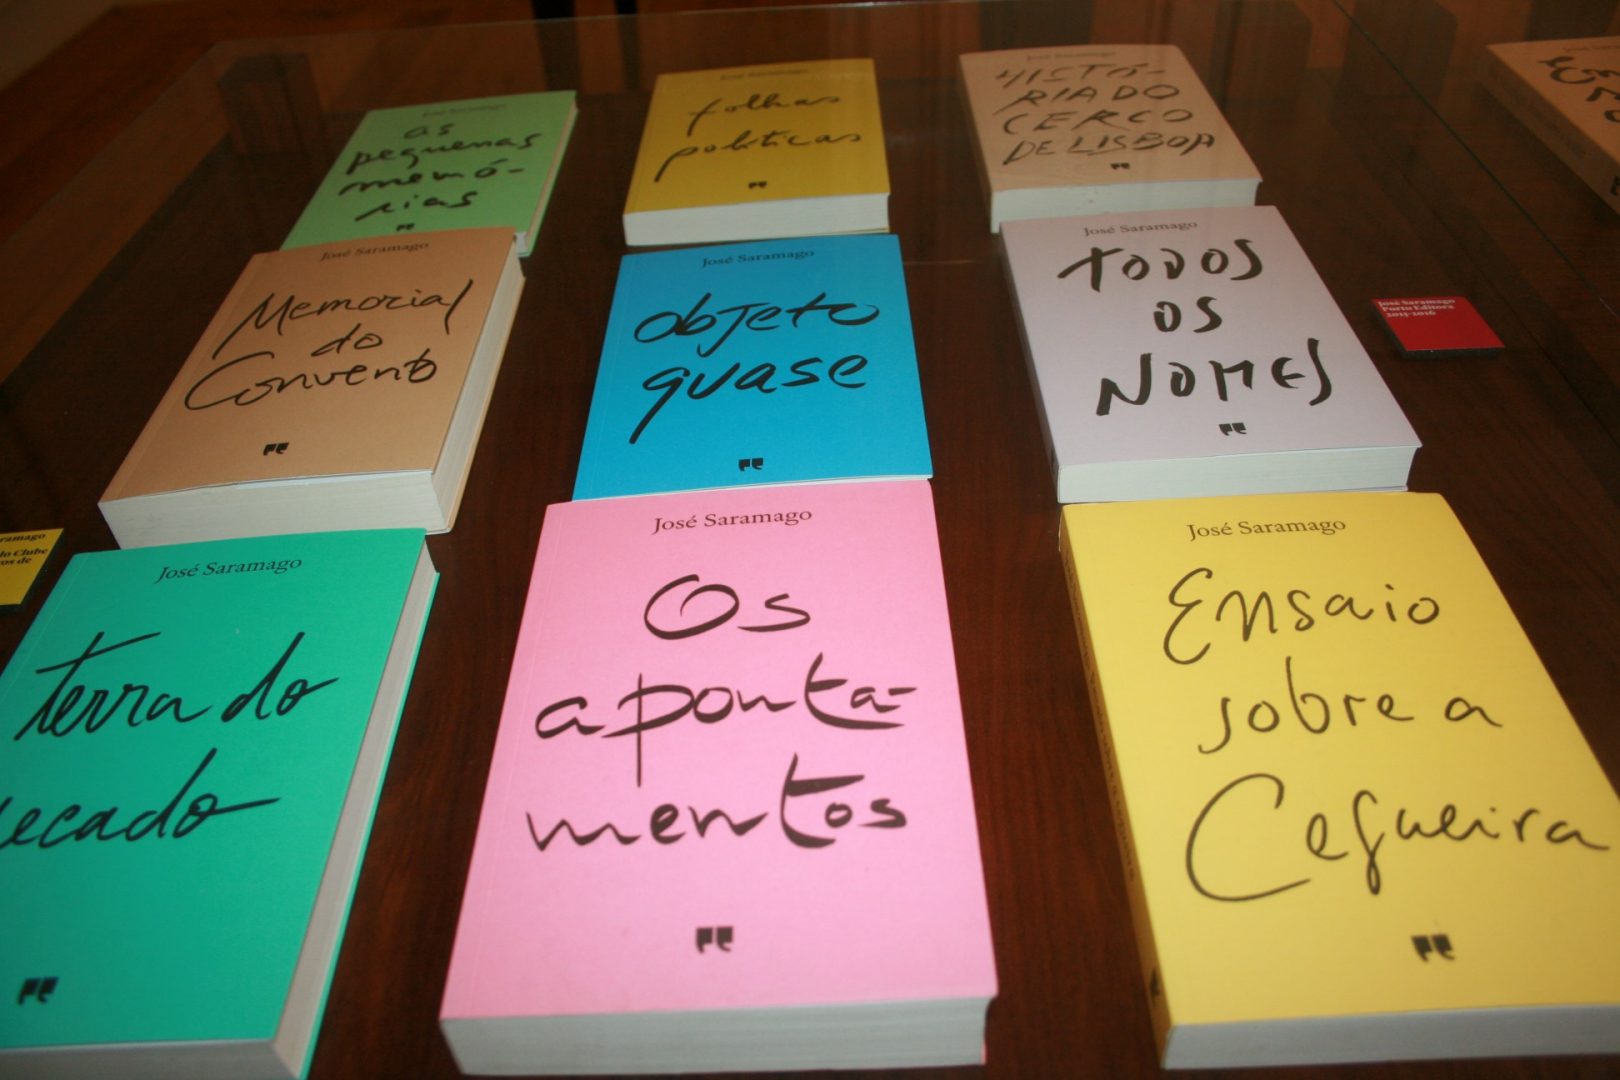 José Saramago
as
pequenas
memó-
rias
José Saramago
folhas
políticas
José Saramago
HISTÓ-
RIA DO
CERCO
DE LISBOA
José Saramago
Memorial
do
Convento
José Saramago
objeto
quase
José Saramago
TODOS
OS
NOMES
José Saramago
Porto Editora
2015-2016
do Clube
José Saramago
terra do
ecado
José Saramago
Os
aponta-
mentos
José Saramago
Ensaio
sobre a
Cegueira